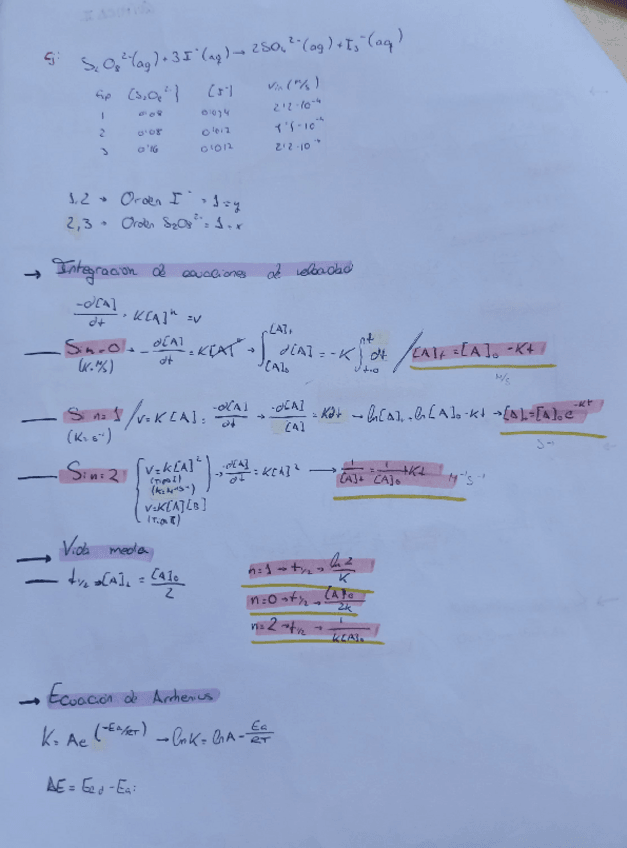 Ej: S₂O₈²⁻(aq) + 3I⁻(aq) → 2SO₄²⁻(aq) + I₃⁻(aq)
Exp [S₂O₈²⁻] [I⁻] Vin (M/s)
1 0'08 0'034 2'2·10⁻⁴
2 0'08 0'017 1'1·10⁻⁴
3 0'16 0'017 2'2·10⁻⁴
1,2 → Orden I⁻ = 1 = y
2,3 → Orden S₂O₈²⁻ = 1 = x
→ Integración de ecuaciones de velocidad
-d[A]/dt = K[A]ⁿ = v
Si n=0 → -d[A]/dt = K[A]⁰ → ∫[A]₀^[A]t d[A] = -K ∫t=0^t dt / [A]t = [A]₀ - Kt
(K=M/s) M/s
Si n=1 / v = K[A] = -d[A]/dt → -d[A]/[A] = Kdt → ln[A]t = ln[A]₀ - Kt → [A]t = [A]₀ e^-Kt
(K=s⁻¹) s⁻¹
Si n=2 { v=K[A]² → -d[A]/dt = K[A]² → 1/[A]t = 1/[A]₀ + Kt M⁻¹s⁻¹
(Tipo I)
(K=M⁻¹s⁻¹)
v=K[A][B]
(Tipo II)
→ Vida media
t₁/₂ → [A]t = [A]₀/2
n=1 → t₁/₂ → ln 2/K
n=0 → t₁/₂ → [A]₀/2k
n=2 → t₁/₂ → 1/K[A]₀
→ Ecuación de Arrhenius
K = Ae^(-Ea/RT) → lnK = lnA - Ea/RT
ΔE = Ead - Eai